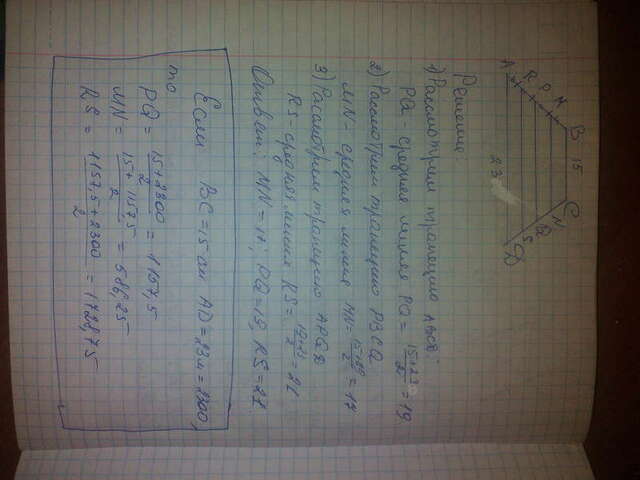 B 15 C
M N
P Q
R S
A 23 D
Решение
1) Рассмотрим трапецию ABCD
PQ - средняя линия PQ = 15+23/2 = 19
2) Рассмотрим трапецию PBCQ
MN - средняя линия MN = 15+19/2 = 17
3) Рассмотрим трапецию APQD
RS - средняя линия RS = 19+23/2 = 21
Ответ: MN = 17; PQ = 19, RS = 21.
Если BC = 15 см AD = 23м = 2300,
то
PQ = 15+2300/2 = 1157,5
MN = 15+1157,5/2 = 586,25
RS = 1157,5+2300/2 = 1728,75